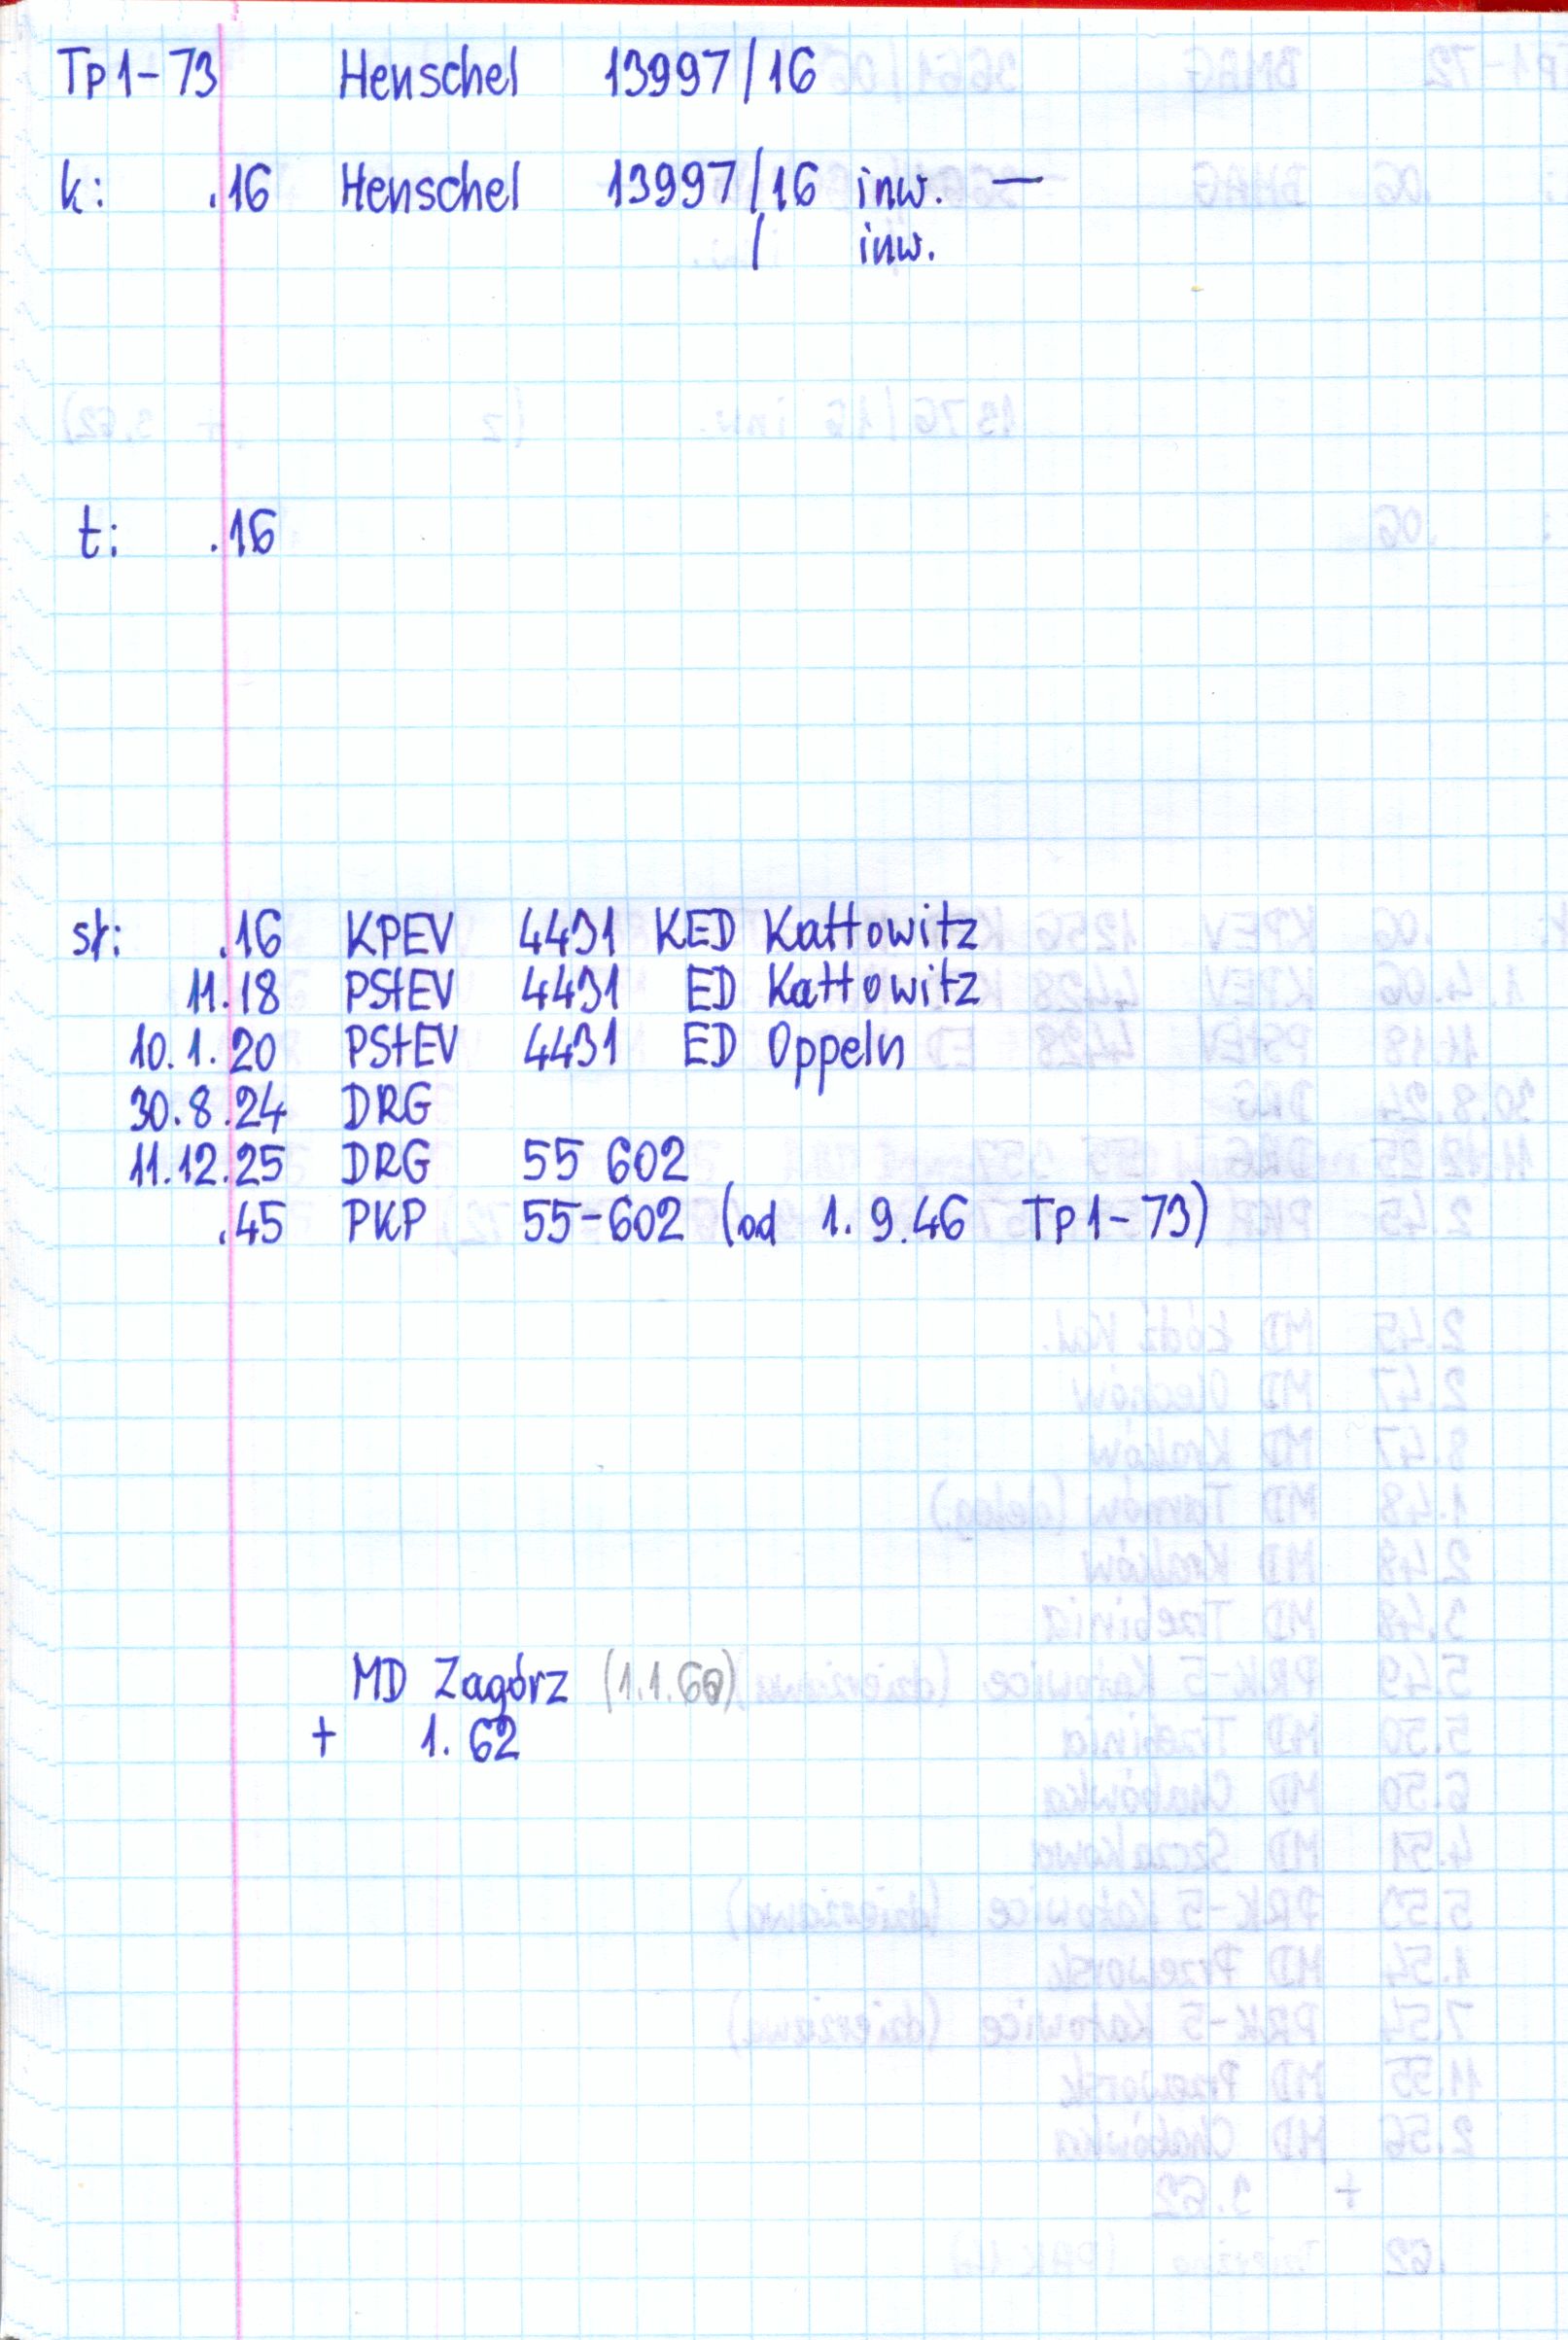 Tp1-73 Henschel 13997/16
k: .16 Henschel 13997/16 inw. —
/ inw.
t: .16
st: .16 KPEV 4431 KED Kattowitz
11.18 PStEV 4431 ED Kattowitz
10.1.20 PStEV 4431 ED Oppeln
30.8.24 DRG
11.12.25 DRG 55 602
.45 PKP 55-602 (od 1.9.46 Tp1-73)
MD Zagórz (1.1.60)
+ 1.62